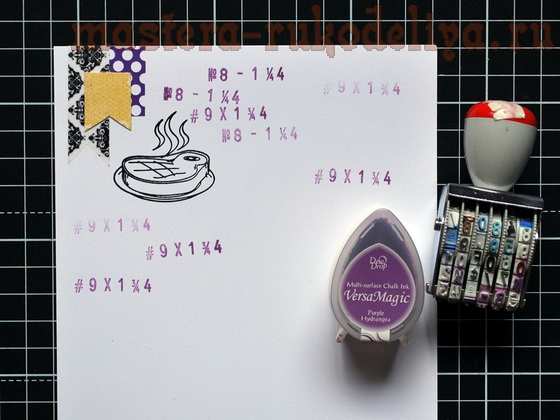 mastera-rukodeliya.ru
№8 - 1 ¼4
№8 - 1 ¼4
# 9 X 1 ¾4
# 9 X 1 ¾4
№8 - 1 ¼4
# 9 X 1 ¾4
# 9 X 1 ¾4
# 9 X 1 ¾4
# 9 X 1 ¾4
Dew Drop
Multi-surface Chalk Ink
VersaMagic
Purple
Hydrangea